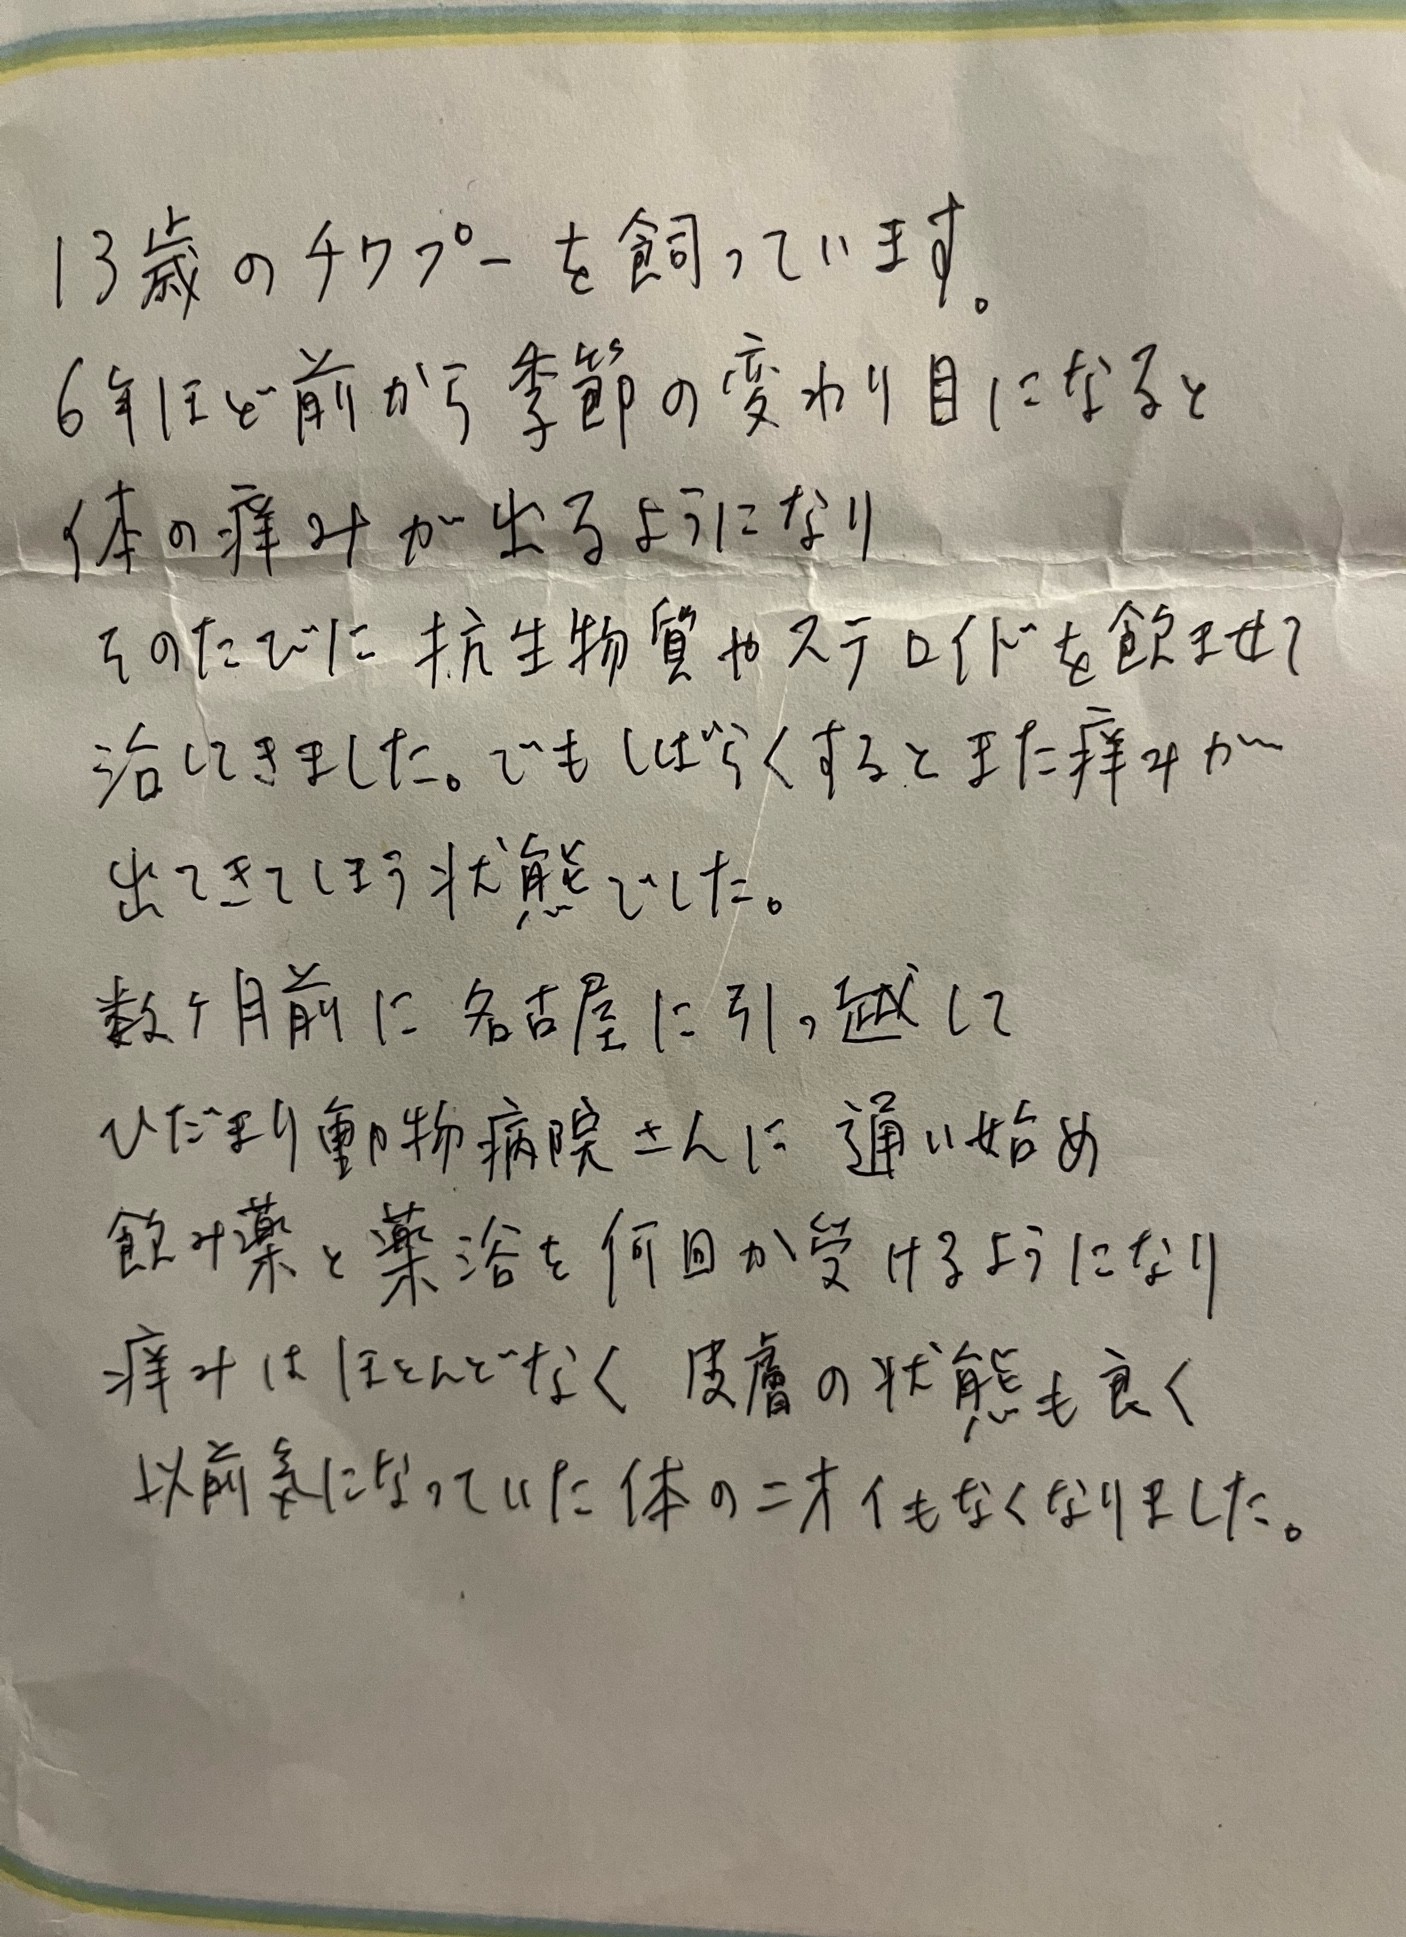 13歳のチワプーを飼っています。
6年ほど前から季節の変わり目になると
体の痒みが出るようになり
そのたびに抗生物質やステロイドを飲ませて
治してきました。でもしばらくするとまた痒みが
出てきてしまう状態でした。
数ヶ月前に名古屋に引っ越して
ひだまり動物病院さんに通い始め
飲み薬と薬浴を何回か受けるようになり
痒みはほとんどなく皮膚の状態も良く
以前気になっていた体のニオイもなくなりました。